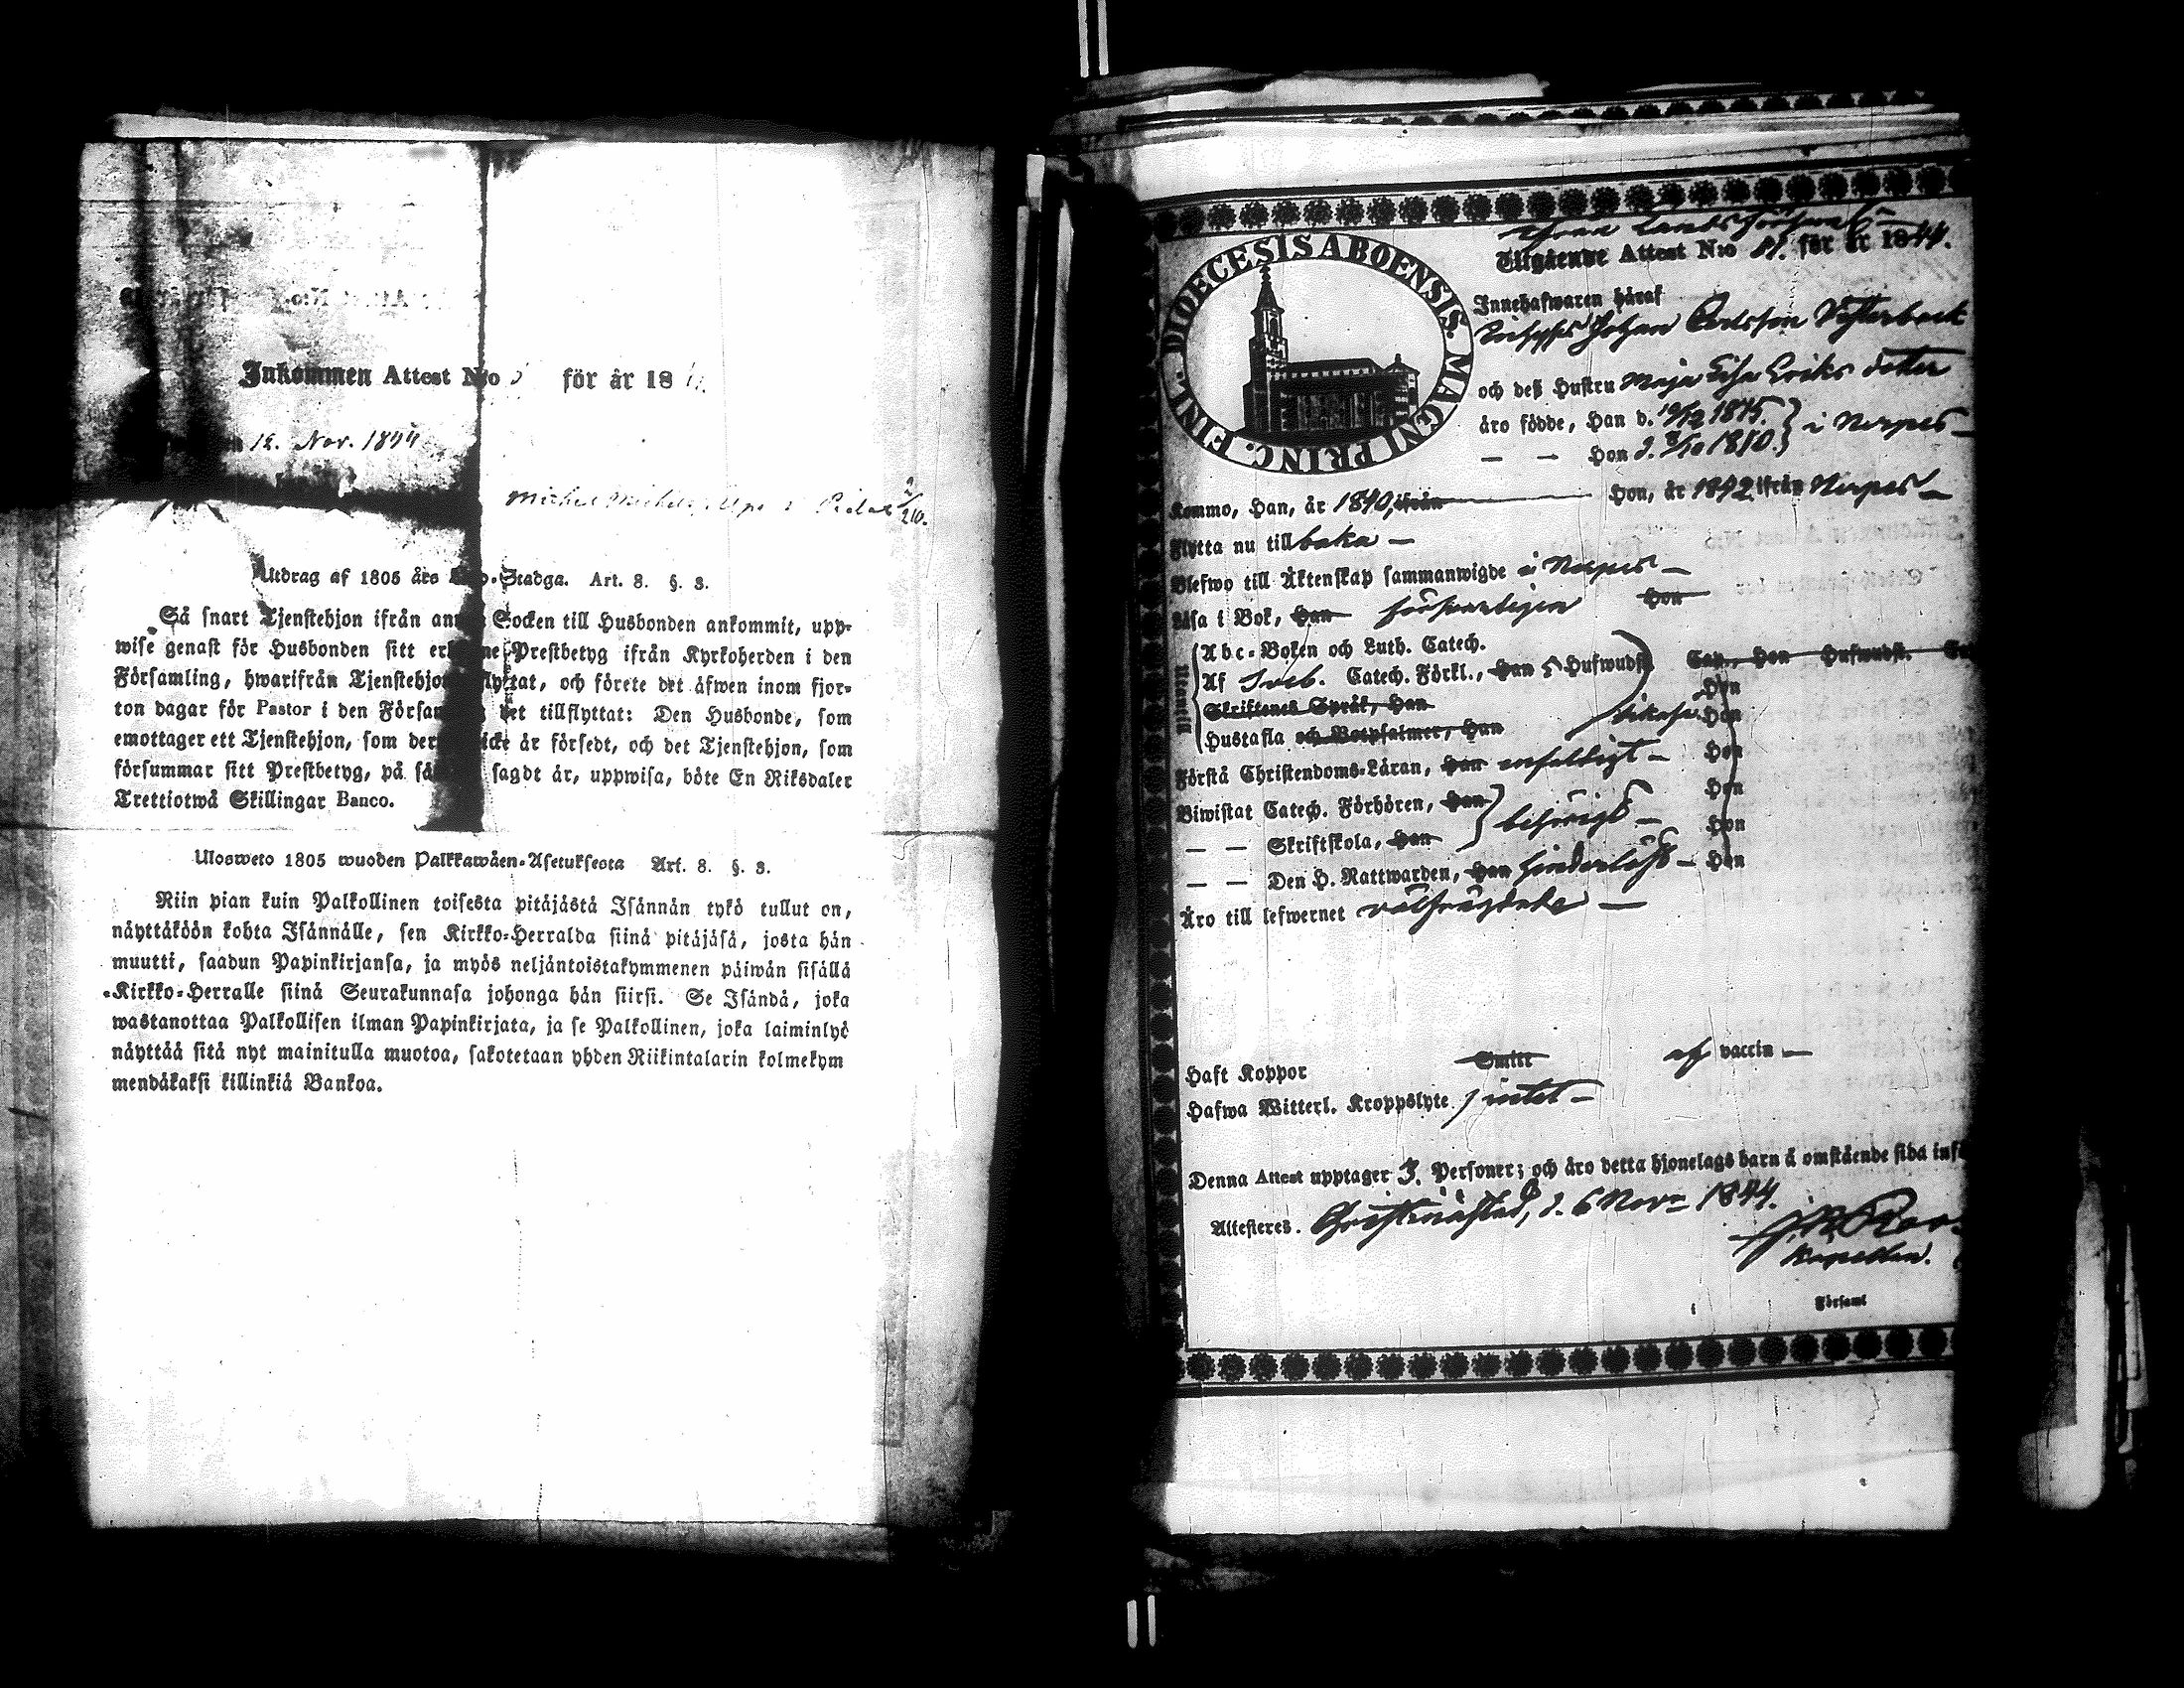 Inkommen Attest N:o för år 18
12. Nov. 1844
Michel
Utdrag af 1805 års Stadga. Art. 8. §. 3.
Så snart Tjenstehjon ifrån Socken till Husbonden ankommit, upp-
wise genast för Husbonden sitt Prestbetyg ifrån Kyrkoherden i den
Församling, hwarifrån Tjenstehjon flyttat, och förete det äfwen inom fjor-
ton dagar för Pastor i den det tillflyttat: Den Husbonde, som
emottager ett Tjenstehjon, som är försedt, och det Tjenstehjon, som
försummar sitt Prestbetyg, på sagdt är, uppwisa, böte En Riksdaler
Trettiotwå Skillingar Banco.
Ulosweto 1805 wuoden Palkkawäen-Asetuksesta Art. 8. §. 3.
Niin pian kuin Palkollinen toisesta pitäjästä Isännän tykö tullut on,
näyttäköön kohta Isännälle, sen Kirkko-Herralda siinä pitäjäsä, josta hän
muutti, saadun Papinkirjansa, ja myös neljäntoistakymmenen päiwän sisällä
Kirkko-Herralle siinä Seurakunnasa johonga hän siirsi. Se Isändä, joka
wastanottaa Palkollisen ilman Papinkirjata, ja se Palkollinen, joka laiminlyö
näyttää sitä nyt mainitulla muotoa, sakotetaan yhden Riikintalarin kolmekym
mendäkaksi killinkiä Bankoa.
DIOECESIS ABOENSIS. MAGNI PRINC. FINL.
Utgående Attest N:o 81. för år 1844.
Innehafwaren häraf
Johan Carlsson Vesterback
och deß Hustru Maja Lisa Eriks dotter
äro födde, Han d. 1815. } i Nerpes
— — Hon d. 1810. }
Kommo, Han, år 1840, ifrån Hon, år 1842 ifrån Nerpes
Flytta nu till baka
Blefwo till Äktenskap sammanwigde i Nerpes
Läsa i Bok, Han försvarligen Hon
Utantill
Abc-Boken och Luth. Catech.
Af Sveb. Catech. Förkl., Han 5 Hufwudst. Cap., Hon Hufwudst.
Skriftenes Språk, Han Hon
Hustafla och Botpsalmer, Han Hon
Förstå Christendoms-Läran, Han enfaldigt Hon
Biwistat Catech. Förhören, Han Hon
— — Skriftskola, Han behörigt Hon
— — Den H. Nattwarden, Han hinderlöst Hon
Äro till lefwernet välfrägdade
Haft Koppor Smitt af vaccin
Hafwa Witterl. Kroppslyte intet
Denna Attest upptager 3. Personer; och äro detta hjonelags barn å omstående sida
Attesteres. Christinæstad, d. 6 Nov. 1844.
Kapellan.
Församl